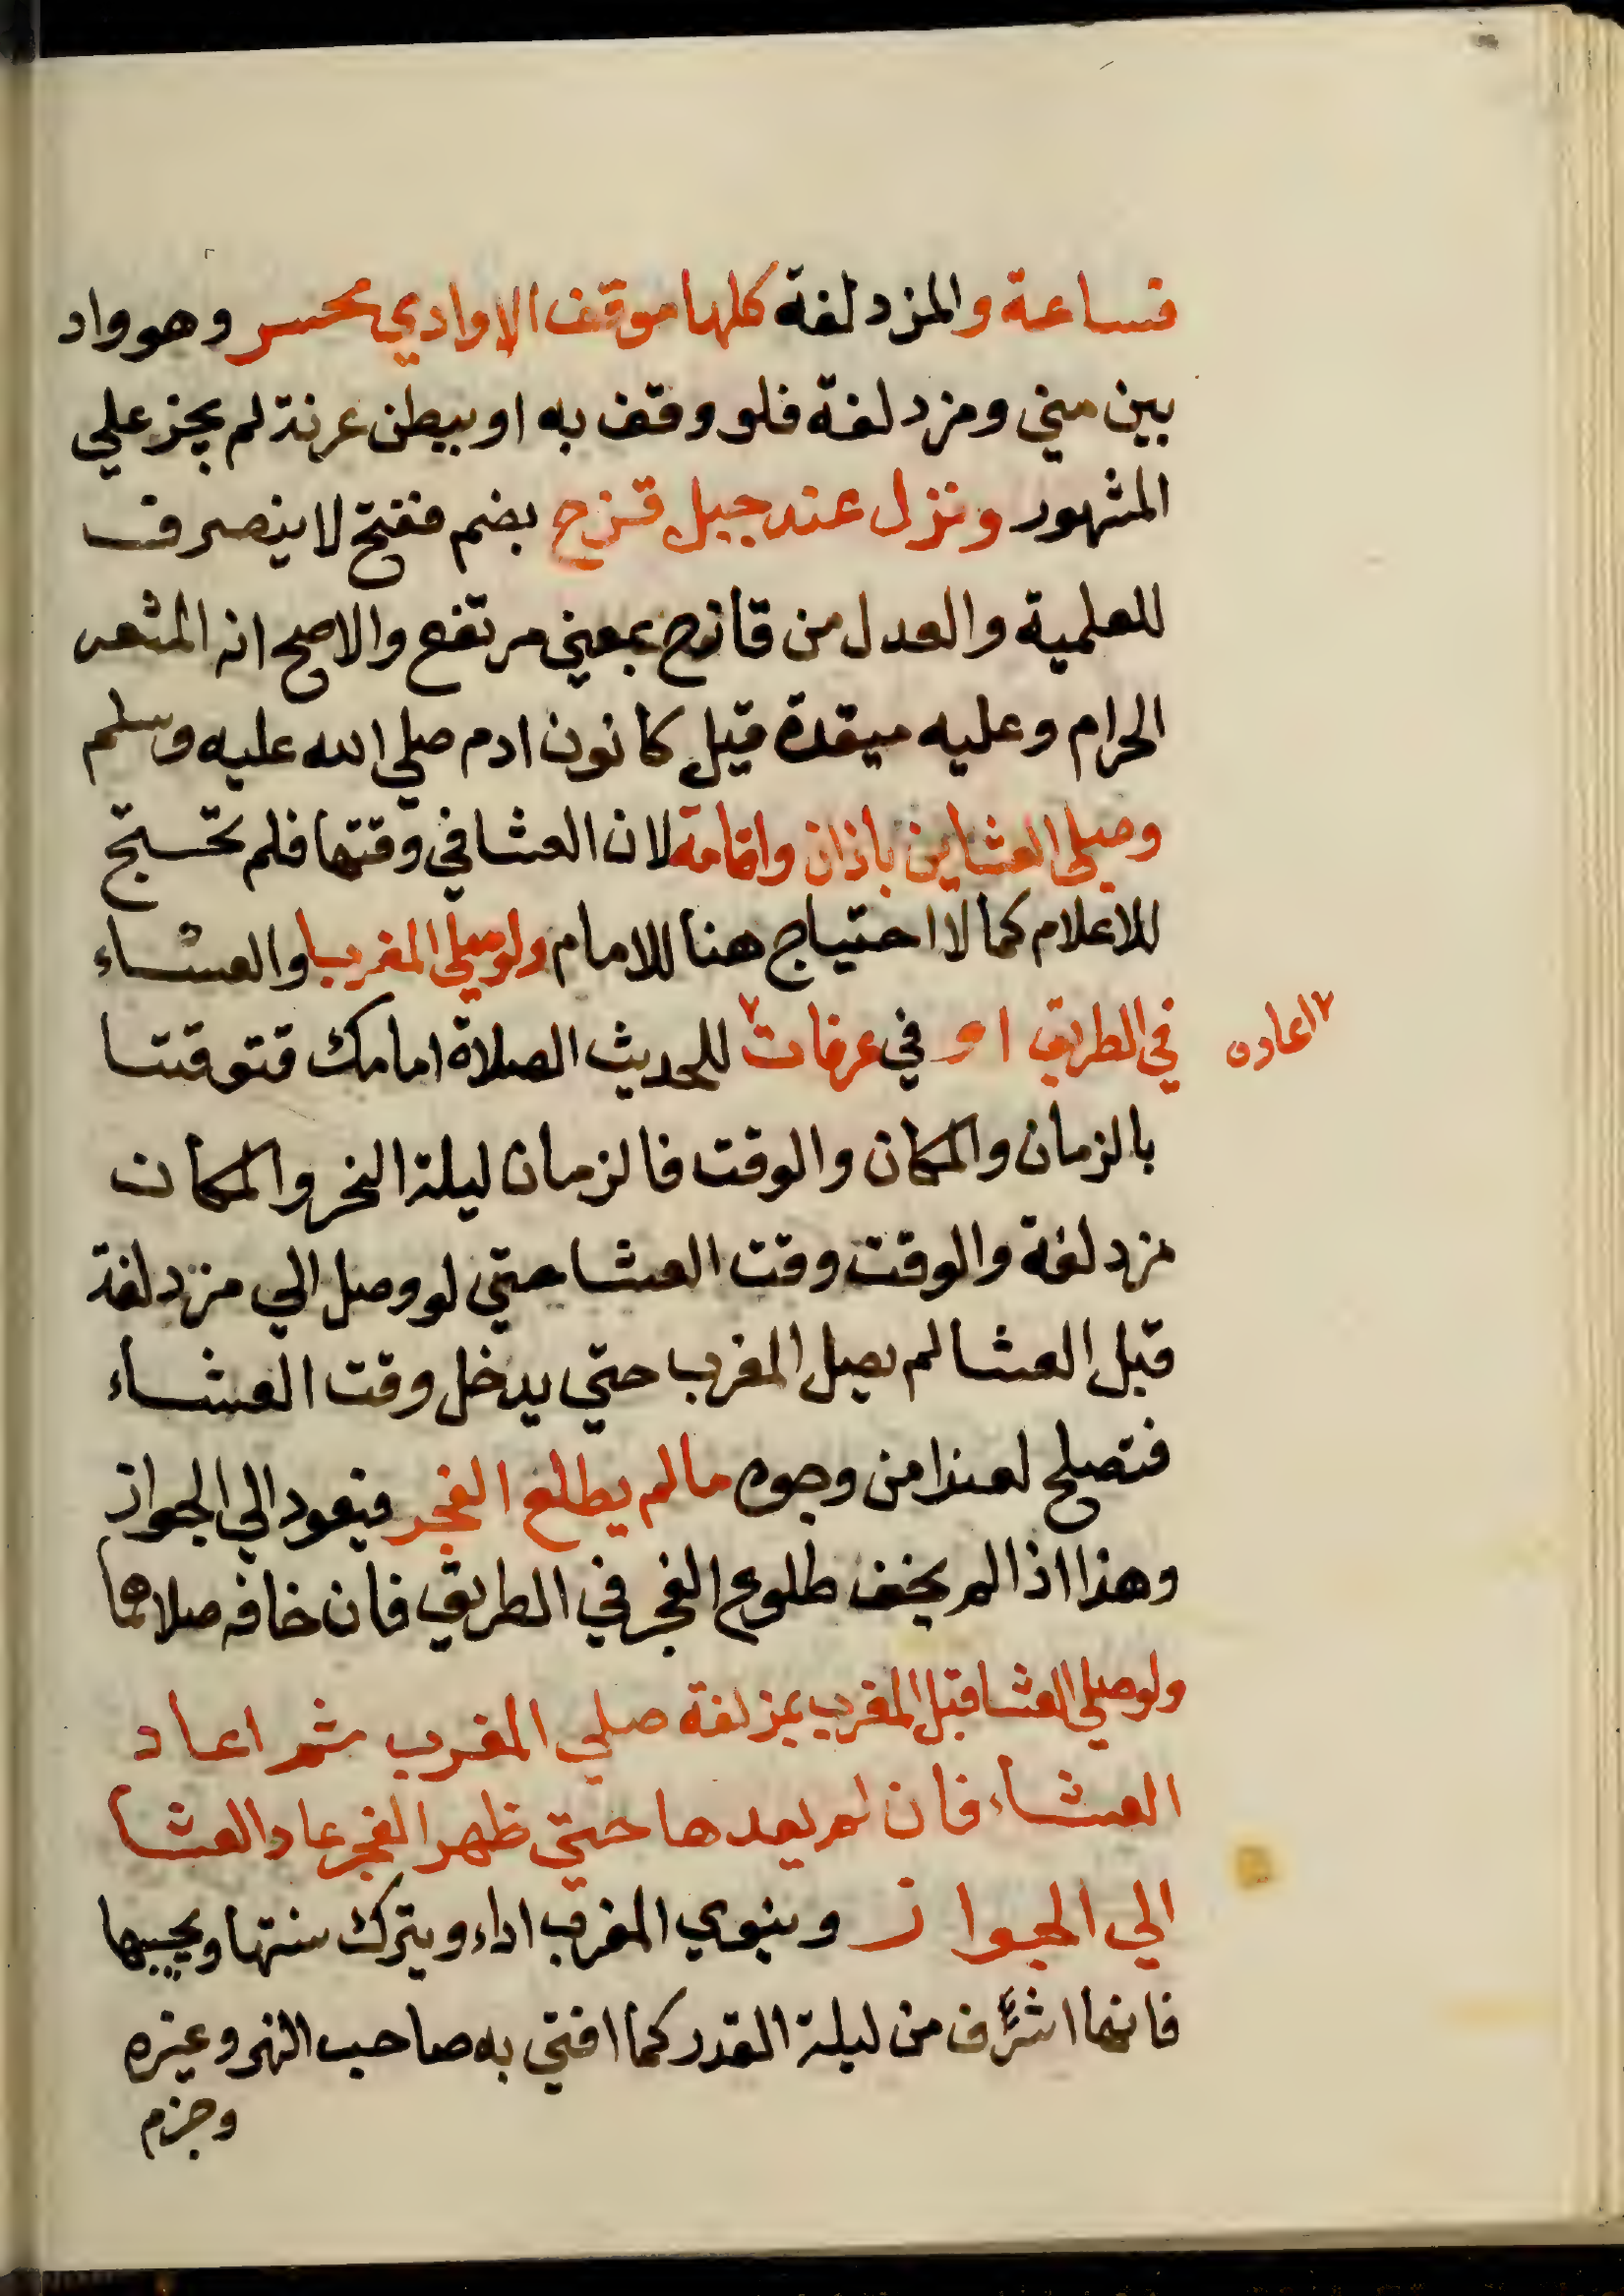 فساعة والمزدلفة كلها موقف الا وادي محسر وهو واد
بين مني ومزدلفة فلو وقف به او ببطن عرنة لم يجز علي
المشهور ونزل عند جبل قزح بضم ففتح لا ينصرف
للعلمية والعدل من قازح بمعني مرتفع والاصح انه المشعر
الحرام وعليه ميقدة قيل كانون ادم صلي الله عليه وسلم
وصلي العشاين باذان واقامة لان العشا في وقتها فلم تحتج
للاعلام كما لا احتياج هنا للامام ولو صلي المغرب او العشاء
في الطريق او في عرفات٧ للحديث الصلاة امامك فتوقتتا
٧ اعاده
بالزمان والمكان والوقت فالزمان ليلة النحر والمكان
مزدلفة والوقت وقت العشا حتي لو وصل الي مزدلفة
قبل العشا لم يصل المغرب حتي يدخل وقت العشاء
فتصلح لغزا من وجوه ما لم يطلع الفجر فيعود الي الجواز
وهذا اذا لم يخف طلوع الفجر في الطريق فان خافه صلاهما
ولو صلي العشا قبل المغرب بمزدلفة صلي المغرب ثم اعاد
العشاء فان لم يعدها حتي ظهر الفجر عاد العشا
الي الجواز وينوي المغرب اداء ويترك سنتها ويحييها
فانها اشرف من ليلة القدر كما افتي به صاحب النهر وغيره
وجزم